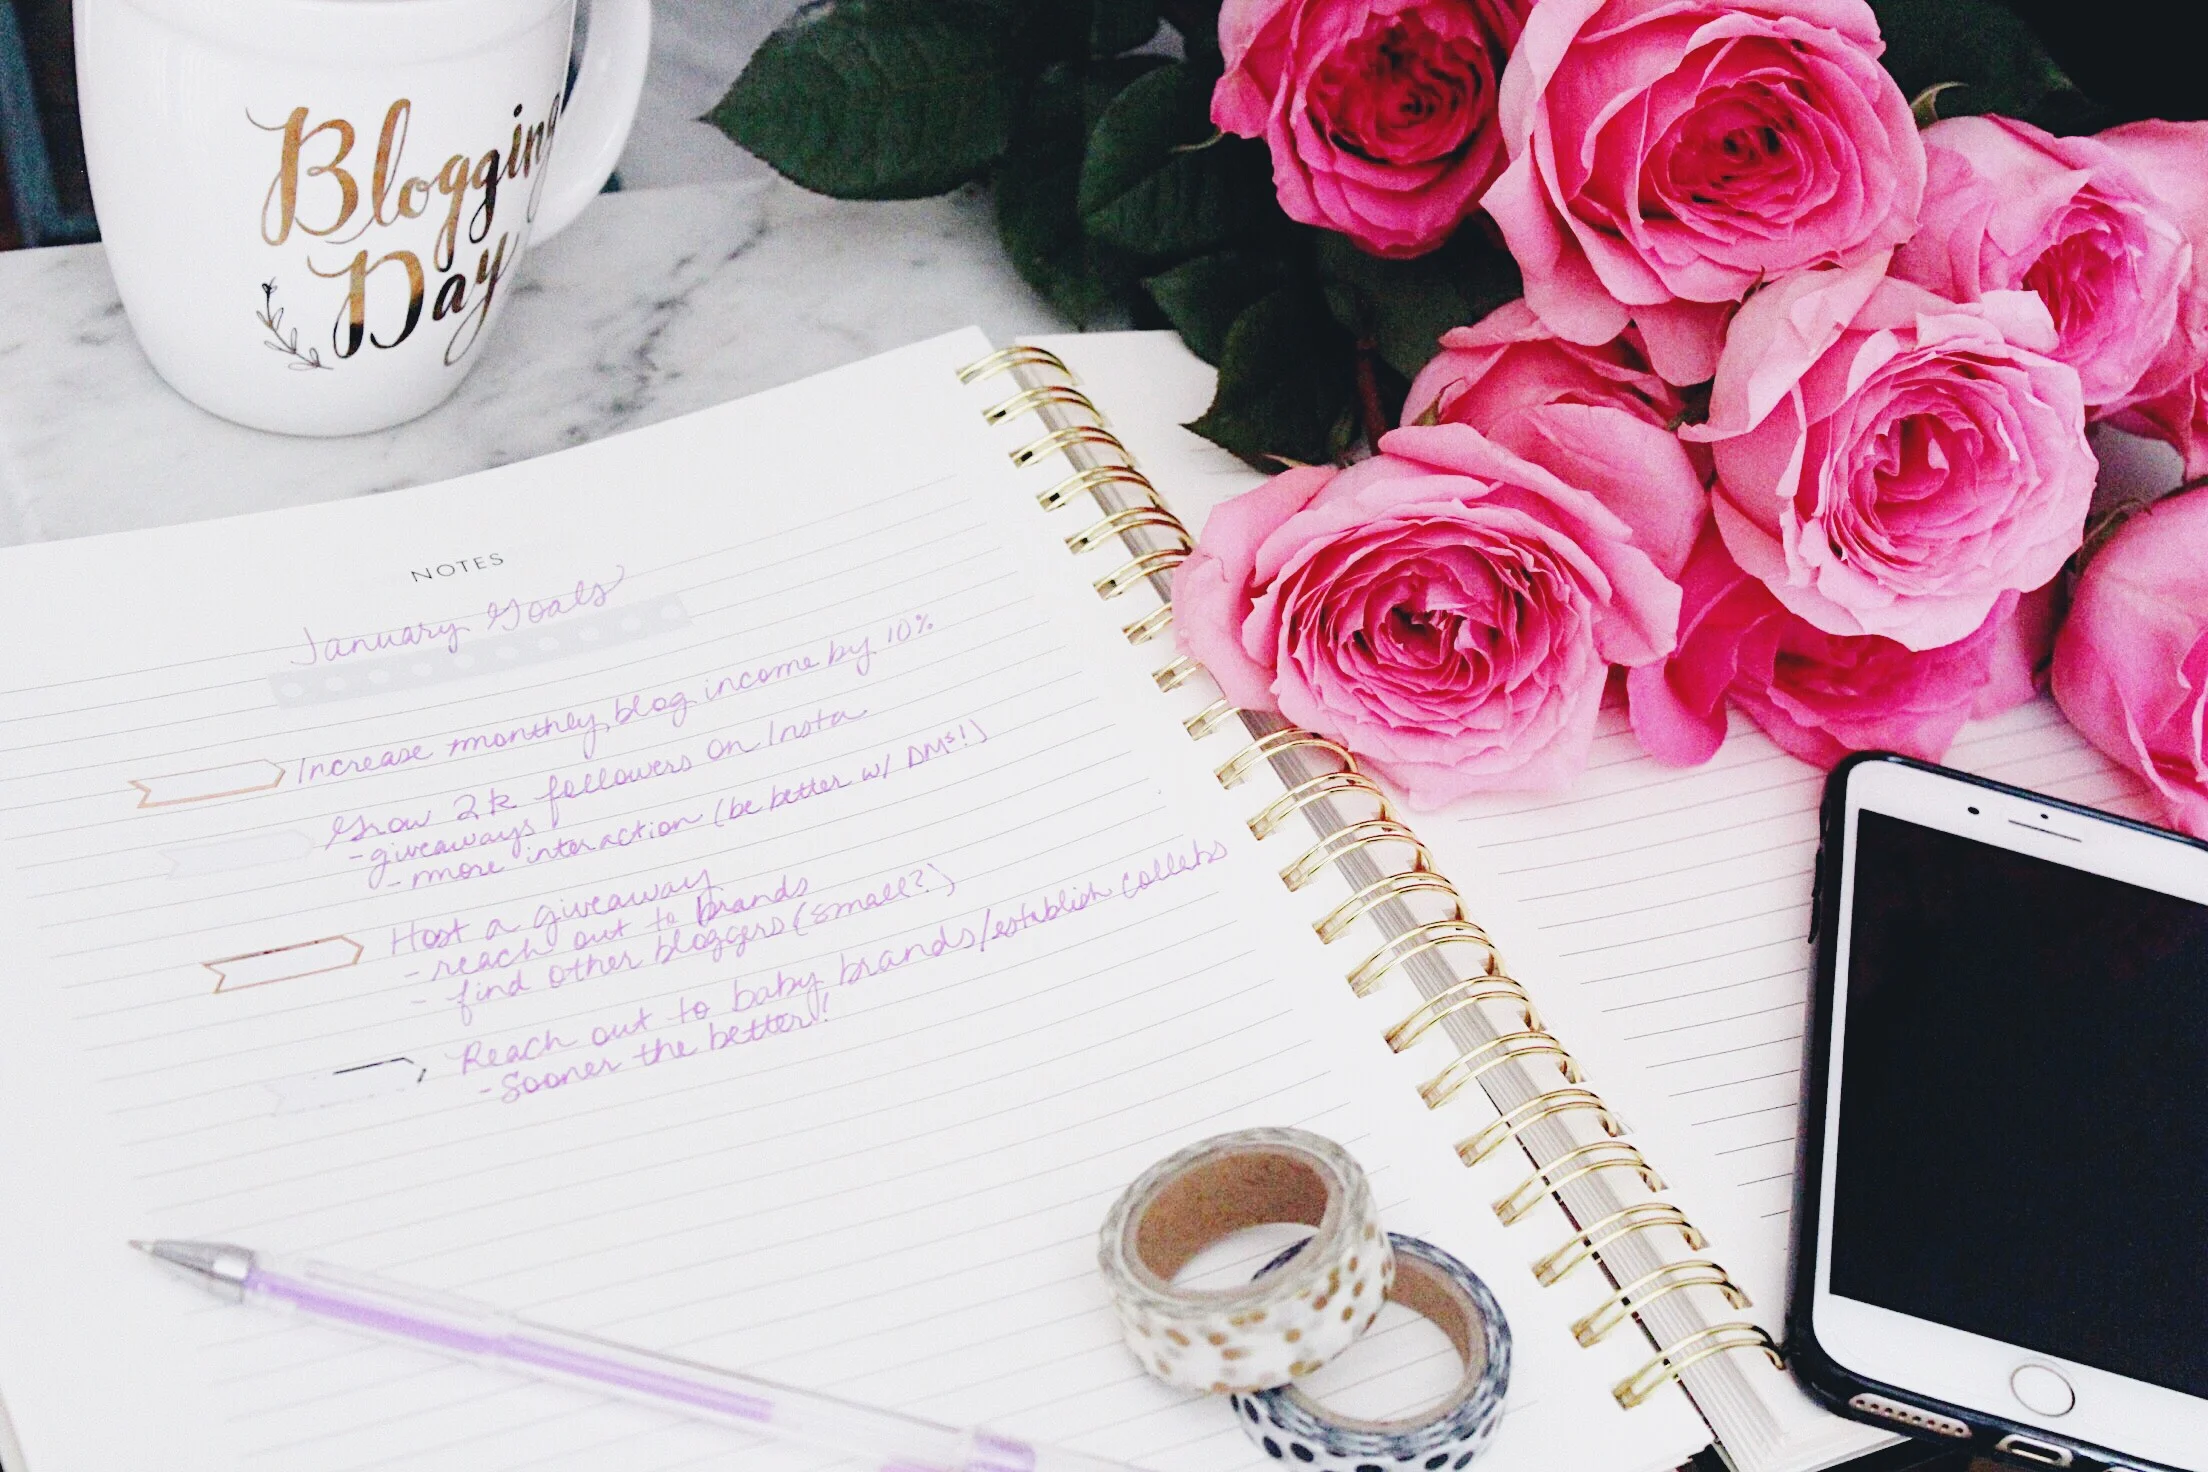 Blogging
Day
NOTES
January Goals
Increase monthly blog income by 10%
Grow 2k followers on Insta
- giveaways
- more interaction (be better w/ DMs!)
Host a giveaway
- reach out to brands
- find other bloggers (small?)
Reach out to baby brands/establish collabs
- Sooner the better!